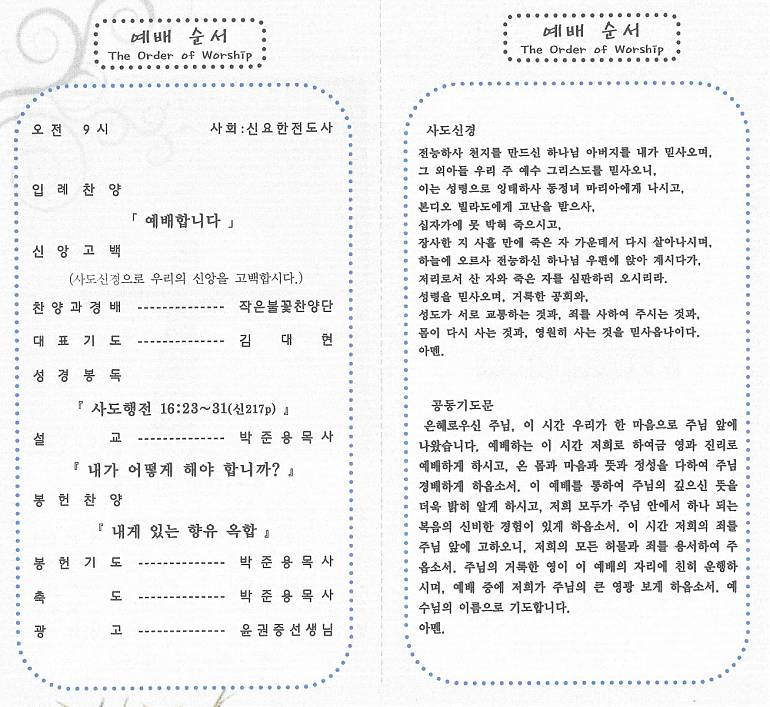 예배 순서
The Order of Worship
오전 9시 사회:신요한전도사
입례찬양
「 예배합니다 」
신앙고백
(사도신경으로 우리의 신앙을 고백합시다.)
찬양과경배 -------------- 작은불꽃찬양단
대표기도 -------------- 김대현
성경봉독
『 사도행전 16:23~31(신217p) 』
설교 -------------- 박준용목사
『 내가 어떻게 해야 합니까? 』
봉헌찬양
『 내게 있는 향유 옥합 』
봉헌기도 -------------- 박준용목사
축도 -------------- 박준용목사
광고 -------------- 윤권중선생님
예배 순서
The Order of Worship
사도신경
전능하사 천지를 만드신 하나님 아버지를 내가 믿사오며,
그 외아들 우리 주 예수 그리스도를 믿사오니,
이는 성령으로 잉태하사 동정녀 마리아에게 나시고,
본디오 빌라도에게 고난을 받으사,
십자가에 못 박혀 죽으시고,
장사한 지 사흘 만에 죽은 자 가운데서 다시 살아나시며,
하늘에 오르사 전능하신 하나님 우편에 앉아 계시다가,
저리로서 산 자와 죽은 자를 심판하러 오시리라.
성령을 믿사오며, 거룩한 공회와,
성도가 서로 교통하는 것과, 죄를 사하여 주시는 것과,
몸이 다시 사는 것과, 영원히 사는 것을 믿사옵나이다.
아멘.
공동기도문
은혜로우신 주님, 이 시간 우리가 한 마음으로 주님 앞에
나왔습니다. 예배하는 이 시간 저희로 하여금 영과 진리로
예배하게 하시고, 온 몸과 마음과 뜻과 정성을 다하여 주님
경배하게 하옵소서. 이 예배를 통하여 주님의 깊으신 뜻을
더욱 밝히 알게 하시고, 저희 모두가 주님 안에서 하나 되는
복음의 신비한 경험이 있게 하옵소서. 이 시간 저희의 죄를
주님 앞에 고하오니, 저희의 모든 허물과 죄를 용서하여 주
옵소서. 주님의 거룩한 영이 이 예배의 자리에 친히 운행하
시며, 예배 중에 저희가 주님의 큰 영광 보게 하옵소서. 예
수님의 이름으로 기도합니다.
아멘.